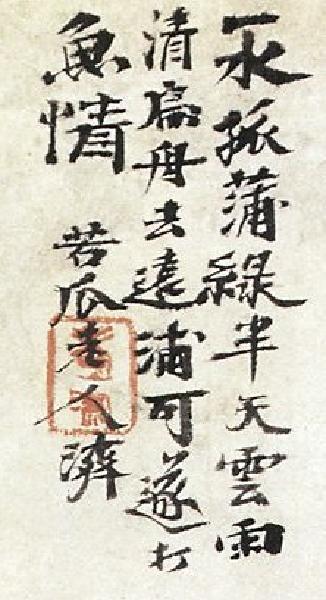 一水孤蒲綠半天雲雨
清扁舟去遠浦可遂打
魚情
苦瓜老人濟